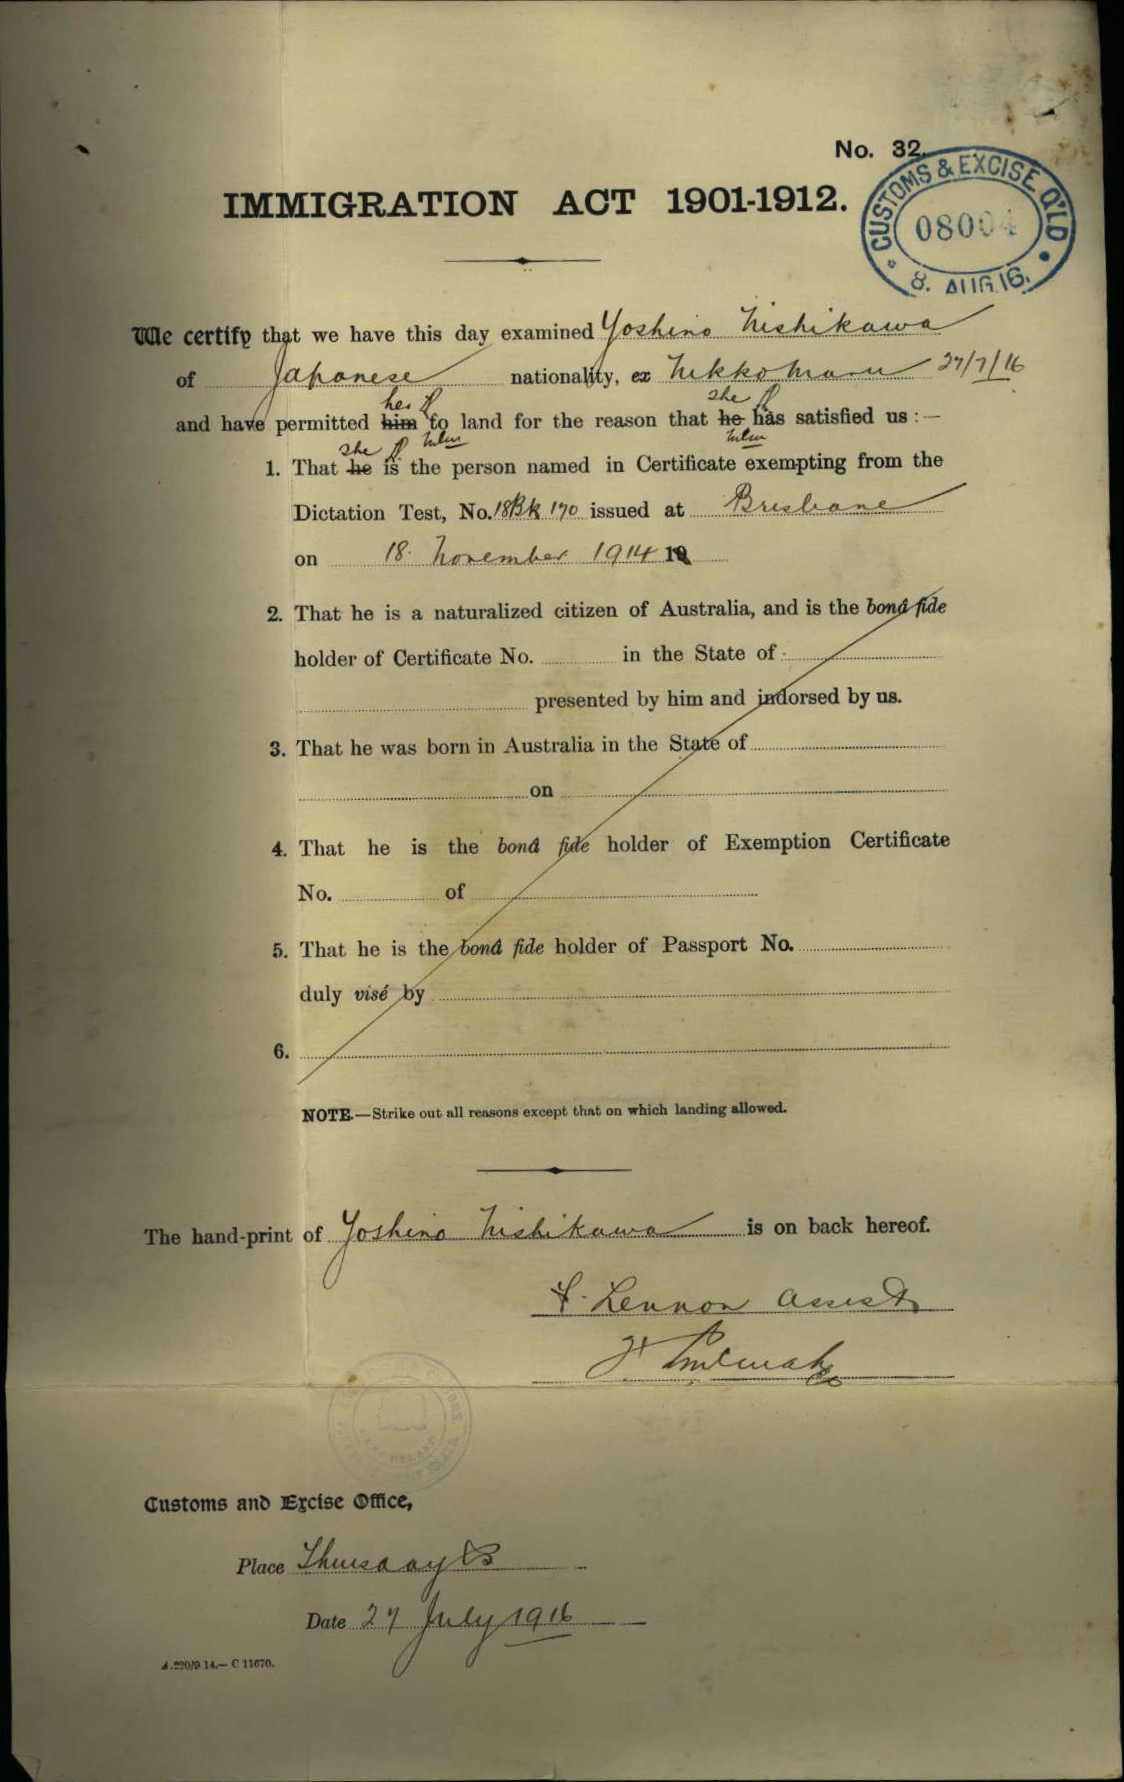 No. 32.
IMMIGRATION ACT 1901-1912.
CUSTOMS & EXCISE Q'LD
08004
8. AUG. 16.
We certify that we have this day examined Yoshino Nishikawa
of Japanese nationality, ex Nikko Maru 27/7/16
her she
and have permitted him to land for the reason that he has satisfied us :—
she
1. That he is the person named in Certificate exempting from the
Dictation Test, No. 18BK 170 issued at Brisbane
on 18. November 1914 19
2. That he is a naturalized citizen of Australia, and is the bonâ fide
holder of Certificate No. in the State of
presented by him and indorsed by us.
3. That he was born in Australia in the State of
on
4. That he is the bonâ fide holder of Exemption Certificate
No. of
5. That he is the bonâ fide holder of Passport No.
duly visé by
6.
NOTE.—Strike out all reasons except that on which landing allowed.
The hand-print of Yoshino Nishikawa is on back hereof.
Lennon Assist
Customs and Excise Office,
Place Thursday Is
Date 27 July 1916
A.220/9.14.—C 11670.